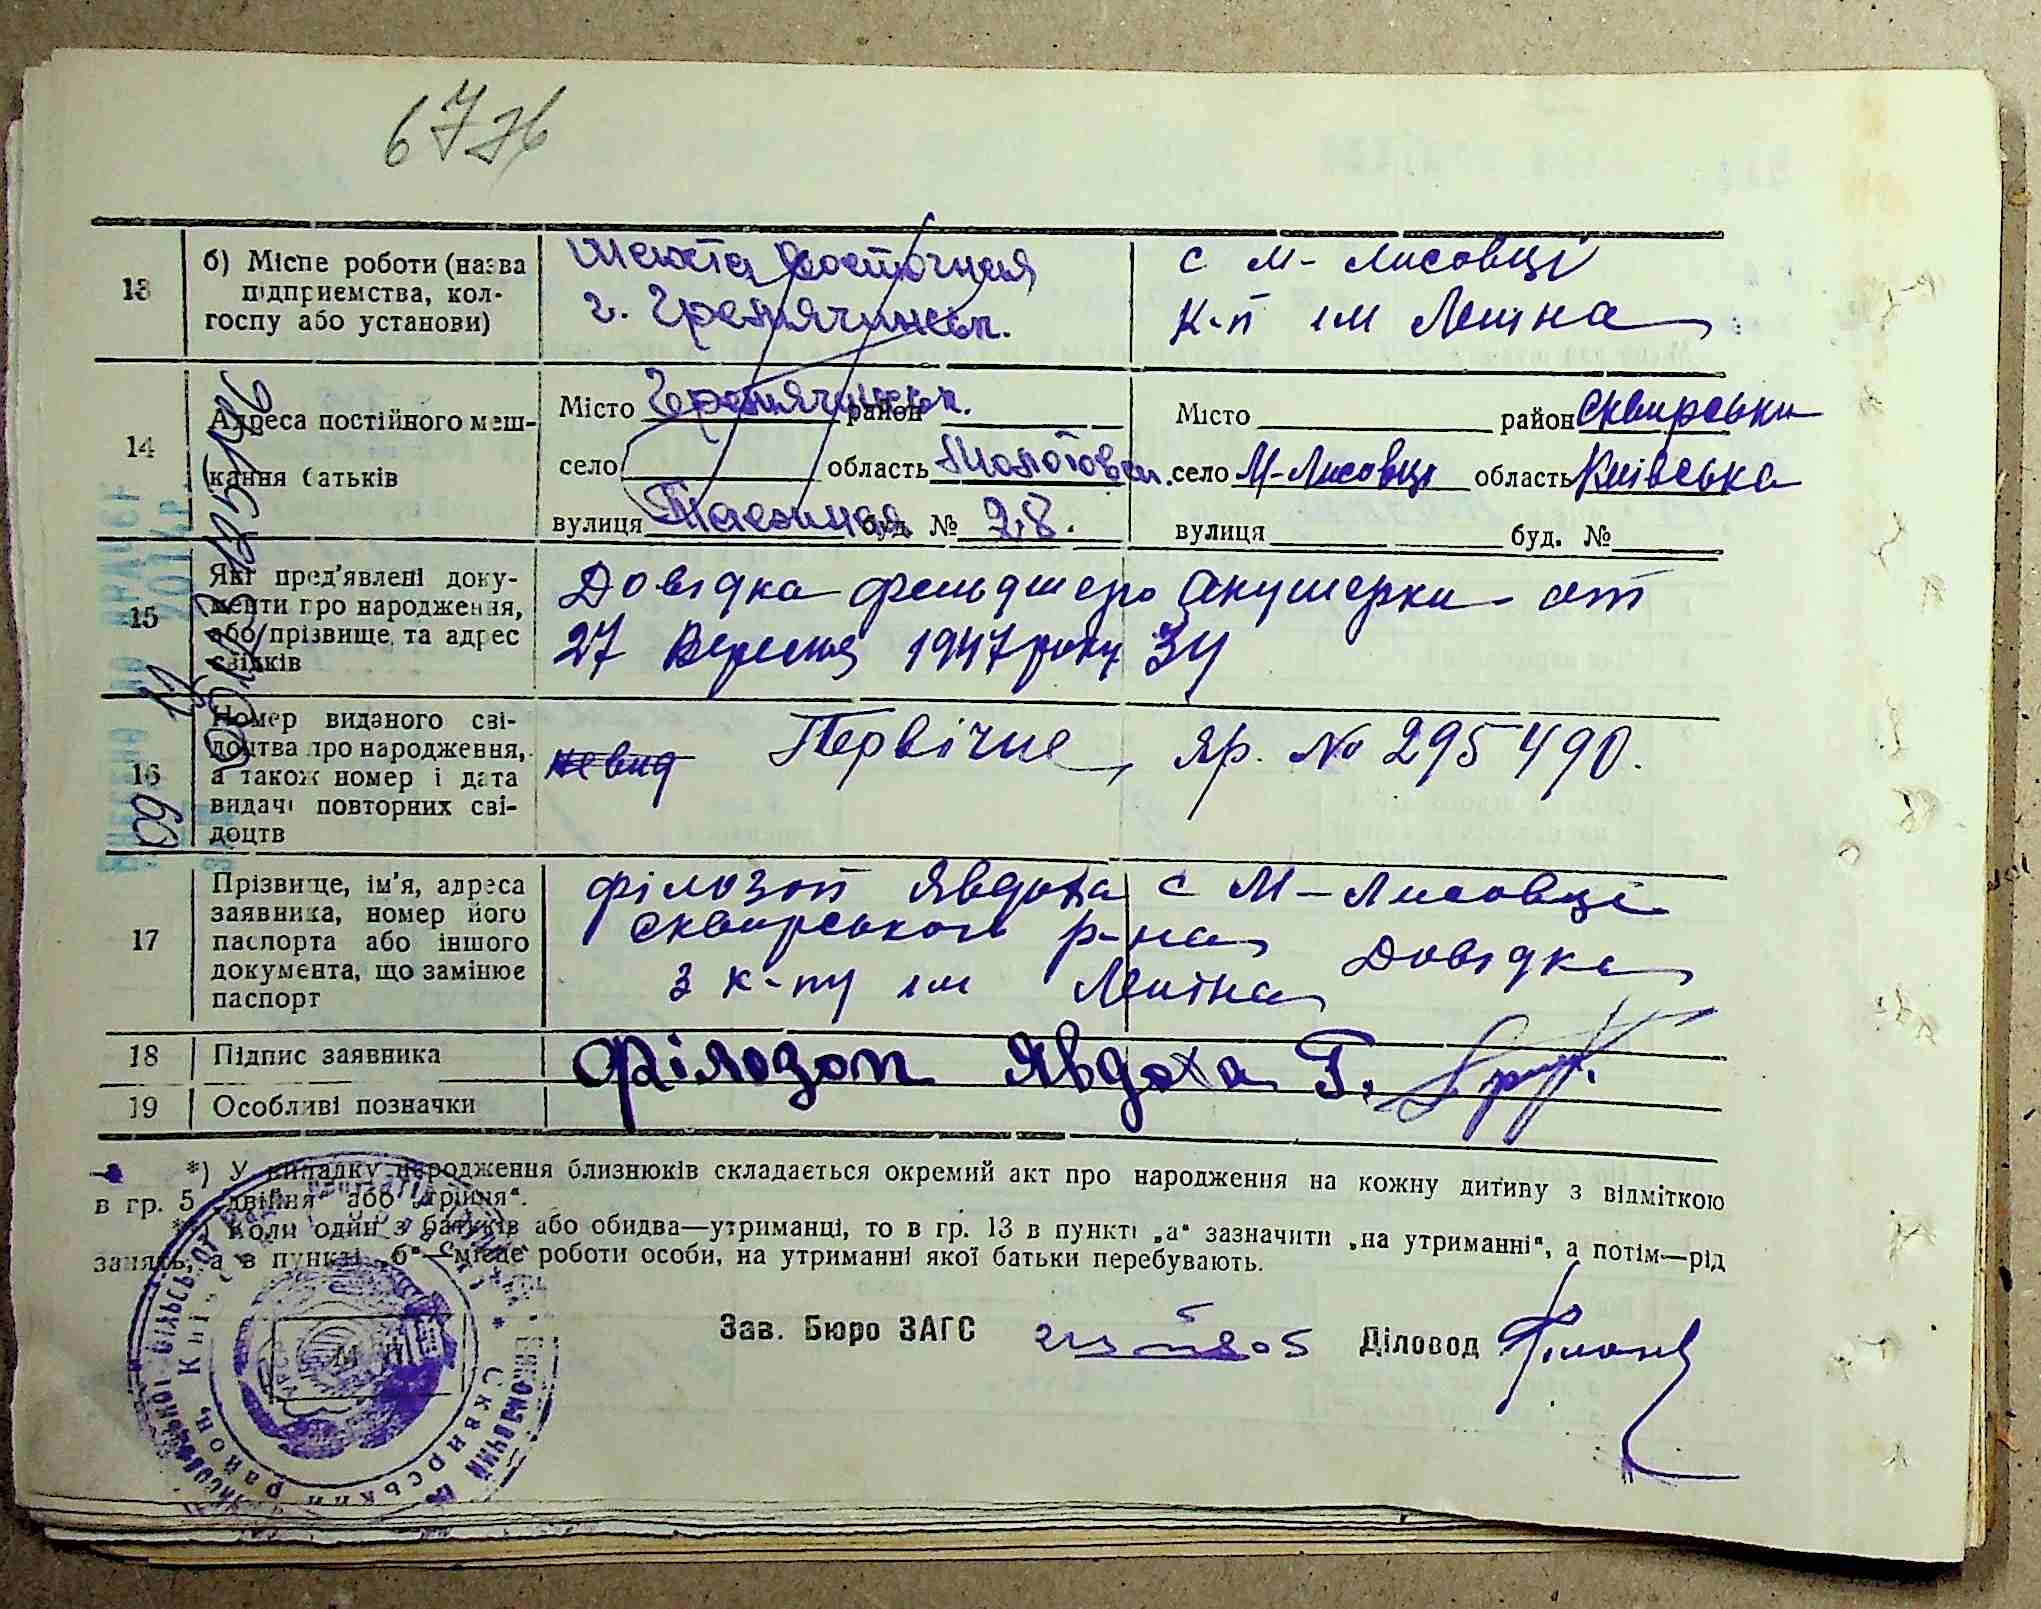 6776
13
б) Місце роботи (назва
підприємства, кол-
госпу або установи)
Шахта Восточная
г. Гремячинск.
с М-Лисовці
к-п ім Леніна
14
Адреса постійного меш-
кання батьків
Місто Гремячинск. район
село область Молотовск.
вулиця Таежная буд. № 28.
Місто район Сквирськи
село М-Лисовці область Київська
вулиця буд. №
15
Які пред'явлені доку-
менти про народження,
або прізвище та адрес
свідків
Довідка фельдшера Акушерки от
27 Вересня 1947 року 34
16
Номер виданого сві-
доцтва про народження,
а також номер і дата
видачі повторних сві-
доцтв
не вид Первічне, яр. № 295490.
17
Прізвище, ім'я, адреса
заявника, номер його
паспорта або іншого
документа, що замінює
паспорт
Філозоп Явдоха с М-Лисовці
Сквирського р-на Довідка
з к-пу ім Леніна
18
Підпис заявника
Філозоп Явдоха Г.
19
Особливі позначки
*) У випадку народження близнюків складається окремий акт про народження на кожну дитину з відміткою
в гр. 5 „двійня“ або „трійня“.
**) Коли один з батьків або обидва—утриманці, то в гр. 13 в пункті „а“ зазначити „на утриманні“, а потім—рід
занять, а в пункті „б“—місце роботи особи, на утриманні якої батьки перебувають.
Зав. Бюро ЗАГС
Діловод
М. П.